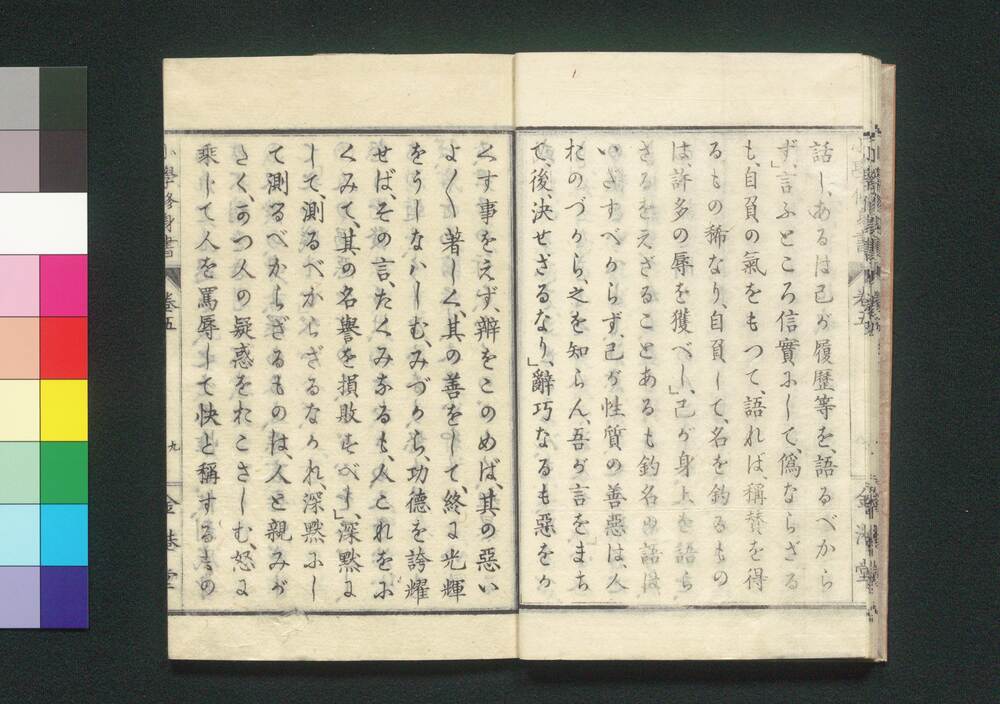 話し、あるは己が履歷等を、語るべから
ず、」言ふところ信實にして、僞ならざる
も、自負の氣をもつて、語れば、稱賛を得
るもの稀なり、自負して、名を釣るもの
は、許多の辱を獲べし、」己が身上を語ら
ざるをえざることあるも釣名の語は
いだすべからず、己が性質の善惡は、人
おのづから、之を知らん、吾が言をまち
て、後、決せざるなり、」辭巧なるも惡をか
くす事をえず、辯をこのめば、其の惡い
よ〱著しく、其の善をして、終に光輝
をうしなハしむ、みづから、功德を誇耀
せば、その言、たくみなるも、人これをに
くみて、其の名譽を損敗すべし、」深黙に
して、測るべからざるなかれ、深黙にし
て測るべからざるものは、人と親みが
たく、かつ人の疑惑をおこさしむ、怒に
乘して人を罵辱して快と稱するもの
小學修身書
卷五
九
金港堂